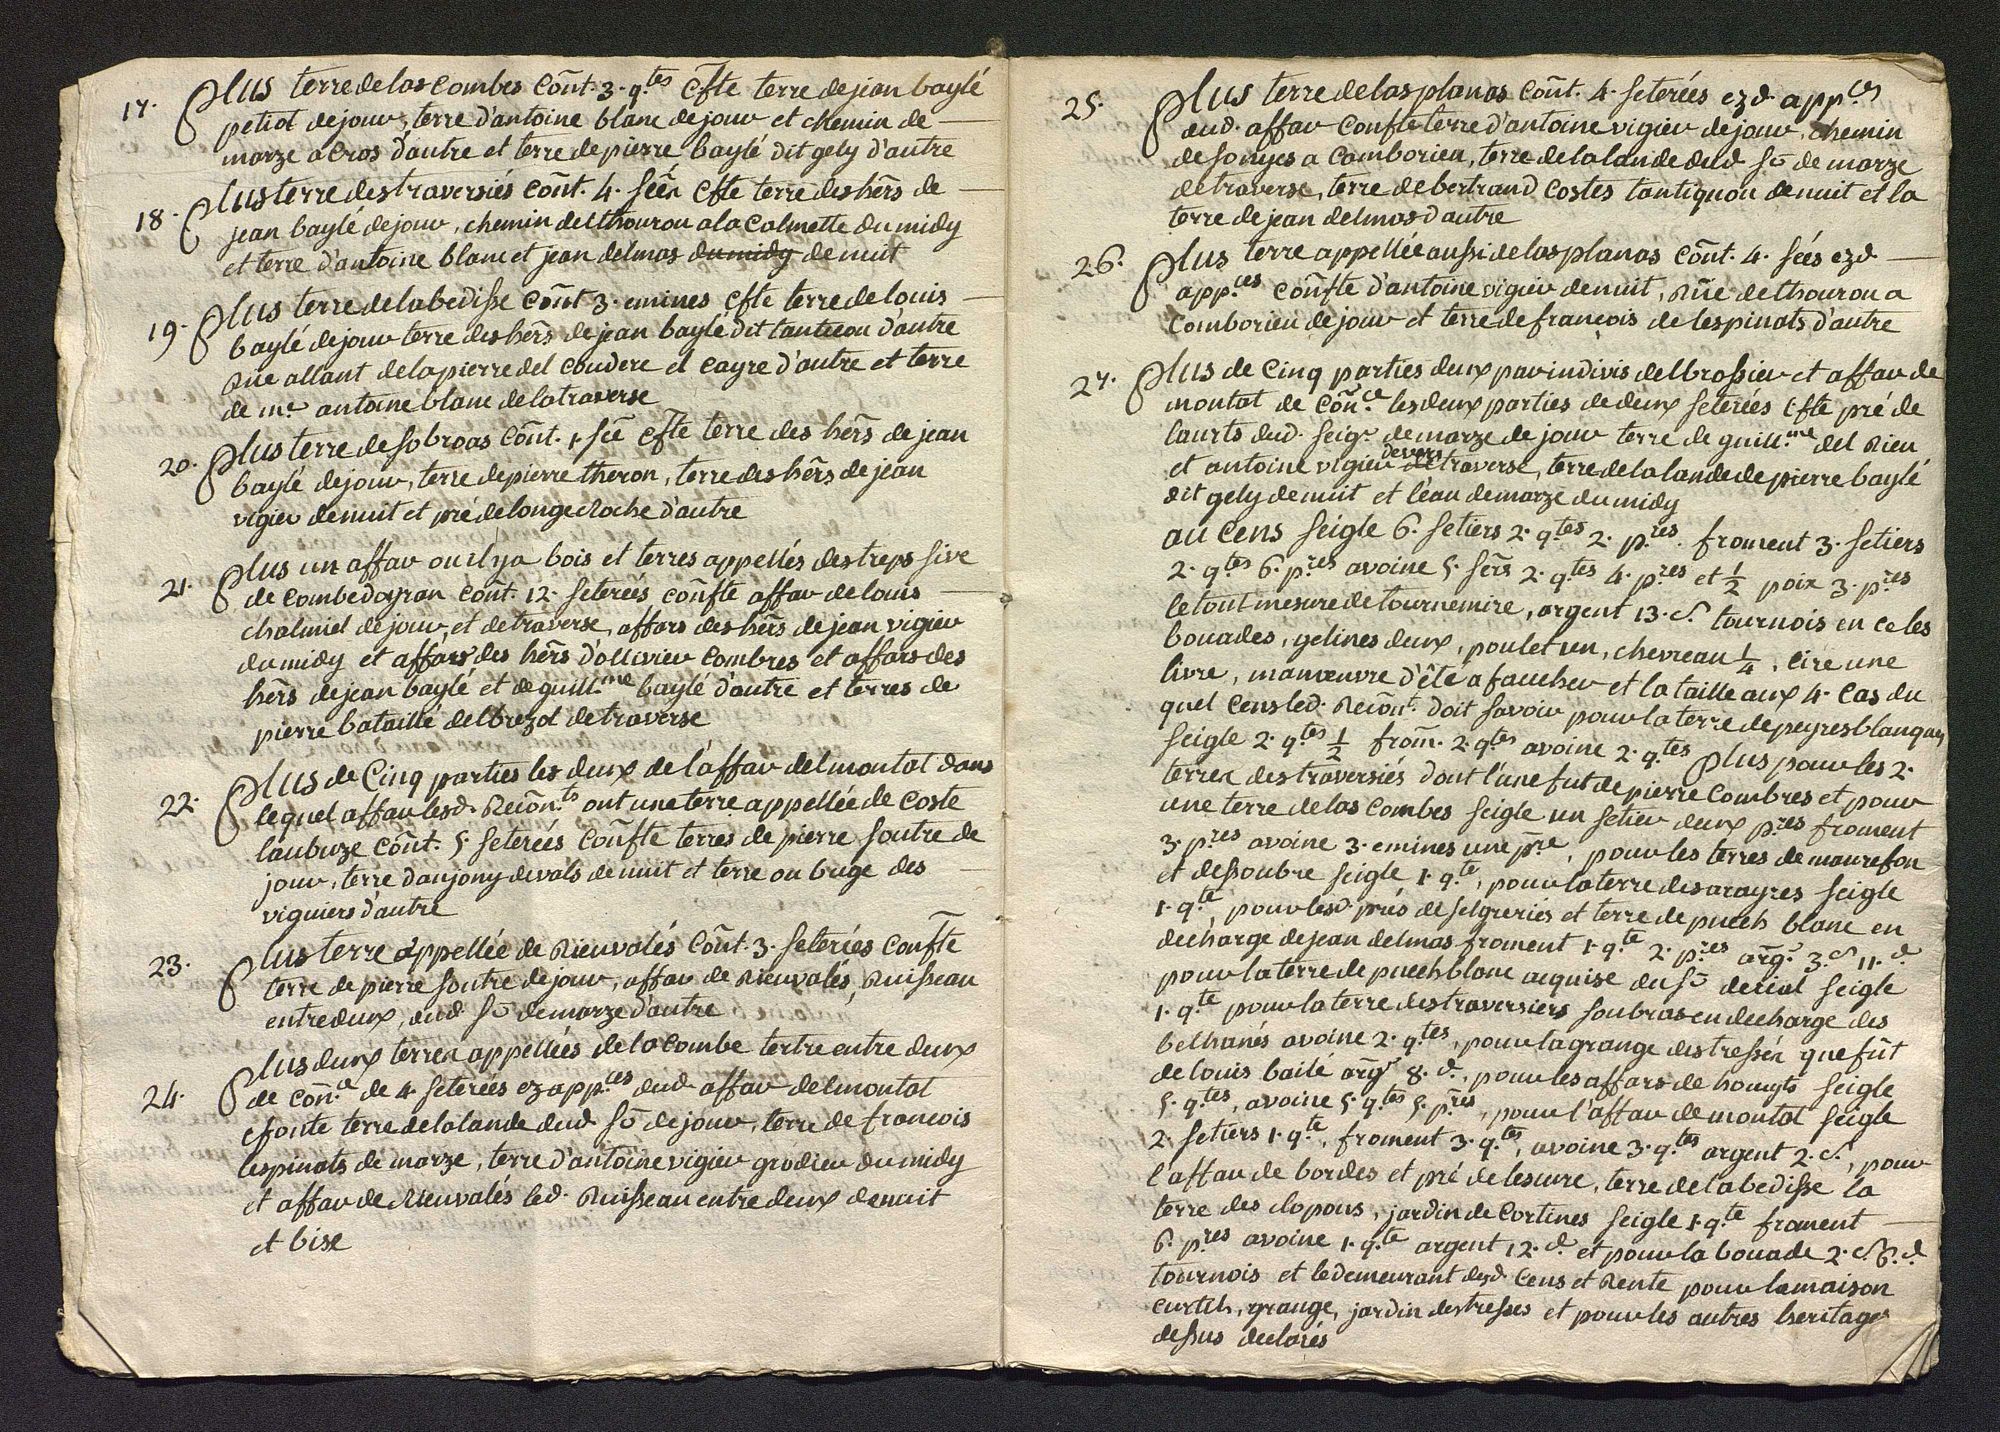 17. Plus terre de las combes cont. 3. q.tes cfte terre de jean baylé
petiot de jour, terre d'antoine blanc de jour et chemin de
marze a cros d'autre et terre de pierre baylé dit gely d'autre
18. Plus terre des traversiés cont. 4. séên cfte terre des hers de
jean baylé de jour, chemin del thourou a la calmette du midy
et terre d'antoine blanc et jean delmas du midy de nuit
19. Plus terre de la bedisse cont 3. emines cfte terre de louis
baylé de jour terre des hers de jean baylé dit d'autre
Rüe allant de la pierre del couderc el cayre d'autre et terre
de m.e antoine blanc de la traverse
20. Plus terre de sobroas cont. 1. sée cfte terre des hers de jean
baylé de jour, terre de pierre theron, terre des hers de jean
vigier de nuit et pré de longe Roche d'autre
21. Plus un affar ou il y a bois et terres appellés des treps sive
de combe dayran cont. 12. seterées confte affar de louis
chalmiel de jour, et de traverse, affars des hers de jean vigier
du midy et affars des hers d'ollivier combres et affars des
hers de jean baylé et de guill.me baylé d'autre et terres de
pierre bataillé delbrezol de traverse
22. Plus de Cinq parties les deux de l'affar del montat dans
lequel affar lesd. Recon.ts ont une terre appellée de coste
laubuze cont. 5. seterées confte terres de pierre soutre de
jour, terre d'anjony de vals de nuit et terre ou buge des
viguiers d'autre
23. Plus terre appellée de Rieuvalés cont. 3. seterées confte
terre de pierre soutre de jour, affar de Rieuvalés, Ruisseau
entredeux, dud. sr de marze d'autre
24. Plus deux terres appellées de la combe tertre entre deux
de con.ce de 4. seterées ez app.ces dud. affar del montat
cfonte terre de la lande dud. sr de jour, terre de francois
lespinats de marze, terre d'antoine vigier grodieu du midy
et affar de Rieuvalés led. Ruisseau entre deux de nuit
et bise
25. Plus terre de las planas cont. 4. seterées ezd. app.ces
dud. affar confte terre d'antoine vigier de jour, chemin
de songes a camborieu, terre de la lande dud. sr de marze
de traverse, terre de bertrand costes tantiquou de nuit et la
terre de jean delmas d'autre
26. Plus terre appellée aussi de las planas cont. 4. sées ezd.
app.ces confte d'antoine vigier de nuit, Rüe de thourou a
Comborieu de jour et terre de francois de lespinats d'autre
27. Plus de cinq parties deux par indivis del brossier et affar de
montat de con.ce les deux parties de deux seterées cfte pré de
laurts dud. seigr. de marze de jour terre de guill.me del Rieu
et antoine vigier devers traverse, terre de la lande de pierre baylé
dit gely de nuit et l'eau de marze du midy
au cens seigle 6. setiers 2. q.tes 2. p.res froment 3. setiers
2. q.tes 6. p.res avoine 5. sers 2. q.tes 4. p.res et 1/2 poix 3. p.res
le tout mesure de tournemire, argent 13. s. tournois en ce les
bouades, gelines deux, poulet un, chevreau 1/4, cire une
livre, manœuvre d'été a faucher et la taille aux 4. cas du
quel cens led. Recont. doit savoir pour la terre de peyres blanques
seigle 2. q.tes 1/2 from. 2. q.tes avoine 2. q.tes Plus pour les 2.
terres des traversiés dont l'une fut de pierre Combres et pour
une terre de las combes seigle un setier deux p.res froment
3. p.res avoine 3. emines une p.re, pour les terres de maurefon
et dessoubre seigle 1. q.te, pour la terre des arayres seigle
1. q.te, pour lesd. prés de selgreriés et terre de puech blanc en
decharge de jean delmas froment 1. q.te 2. p.res arg. 3. s. 11. d.
pour la terre de puechblanc acquise du sr deriol seigle
1. q.te pour la terre des traversiers soubras en decharge des
belhanés avoine 2. q.tes, pour la grange des tressén que fût
de louis bailé arg. 8. d., pour les affars de homyts seigle
5. q.tes, avoine 5. q.tes 5. p.res, pour l'affar de montat seigle
2. setiers 1. q.te, froment 3. q.tes, avoine 3. q.tes argent 2. s., pour
l'affar de bordes et pré de lesure, terre de la bedisse la
terre des clopous, jardin de cortines seigle 1. q.te froment
6. p.res avoine 1. q.te argent 12. d. et pour la bouade 2. s. 6. d.
tournois et le demeurant desd. Cens et Rente pour la maison
curtil, grange, jardin des tresses et pour les autres heritages
dessus declarés